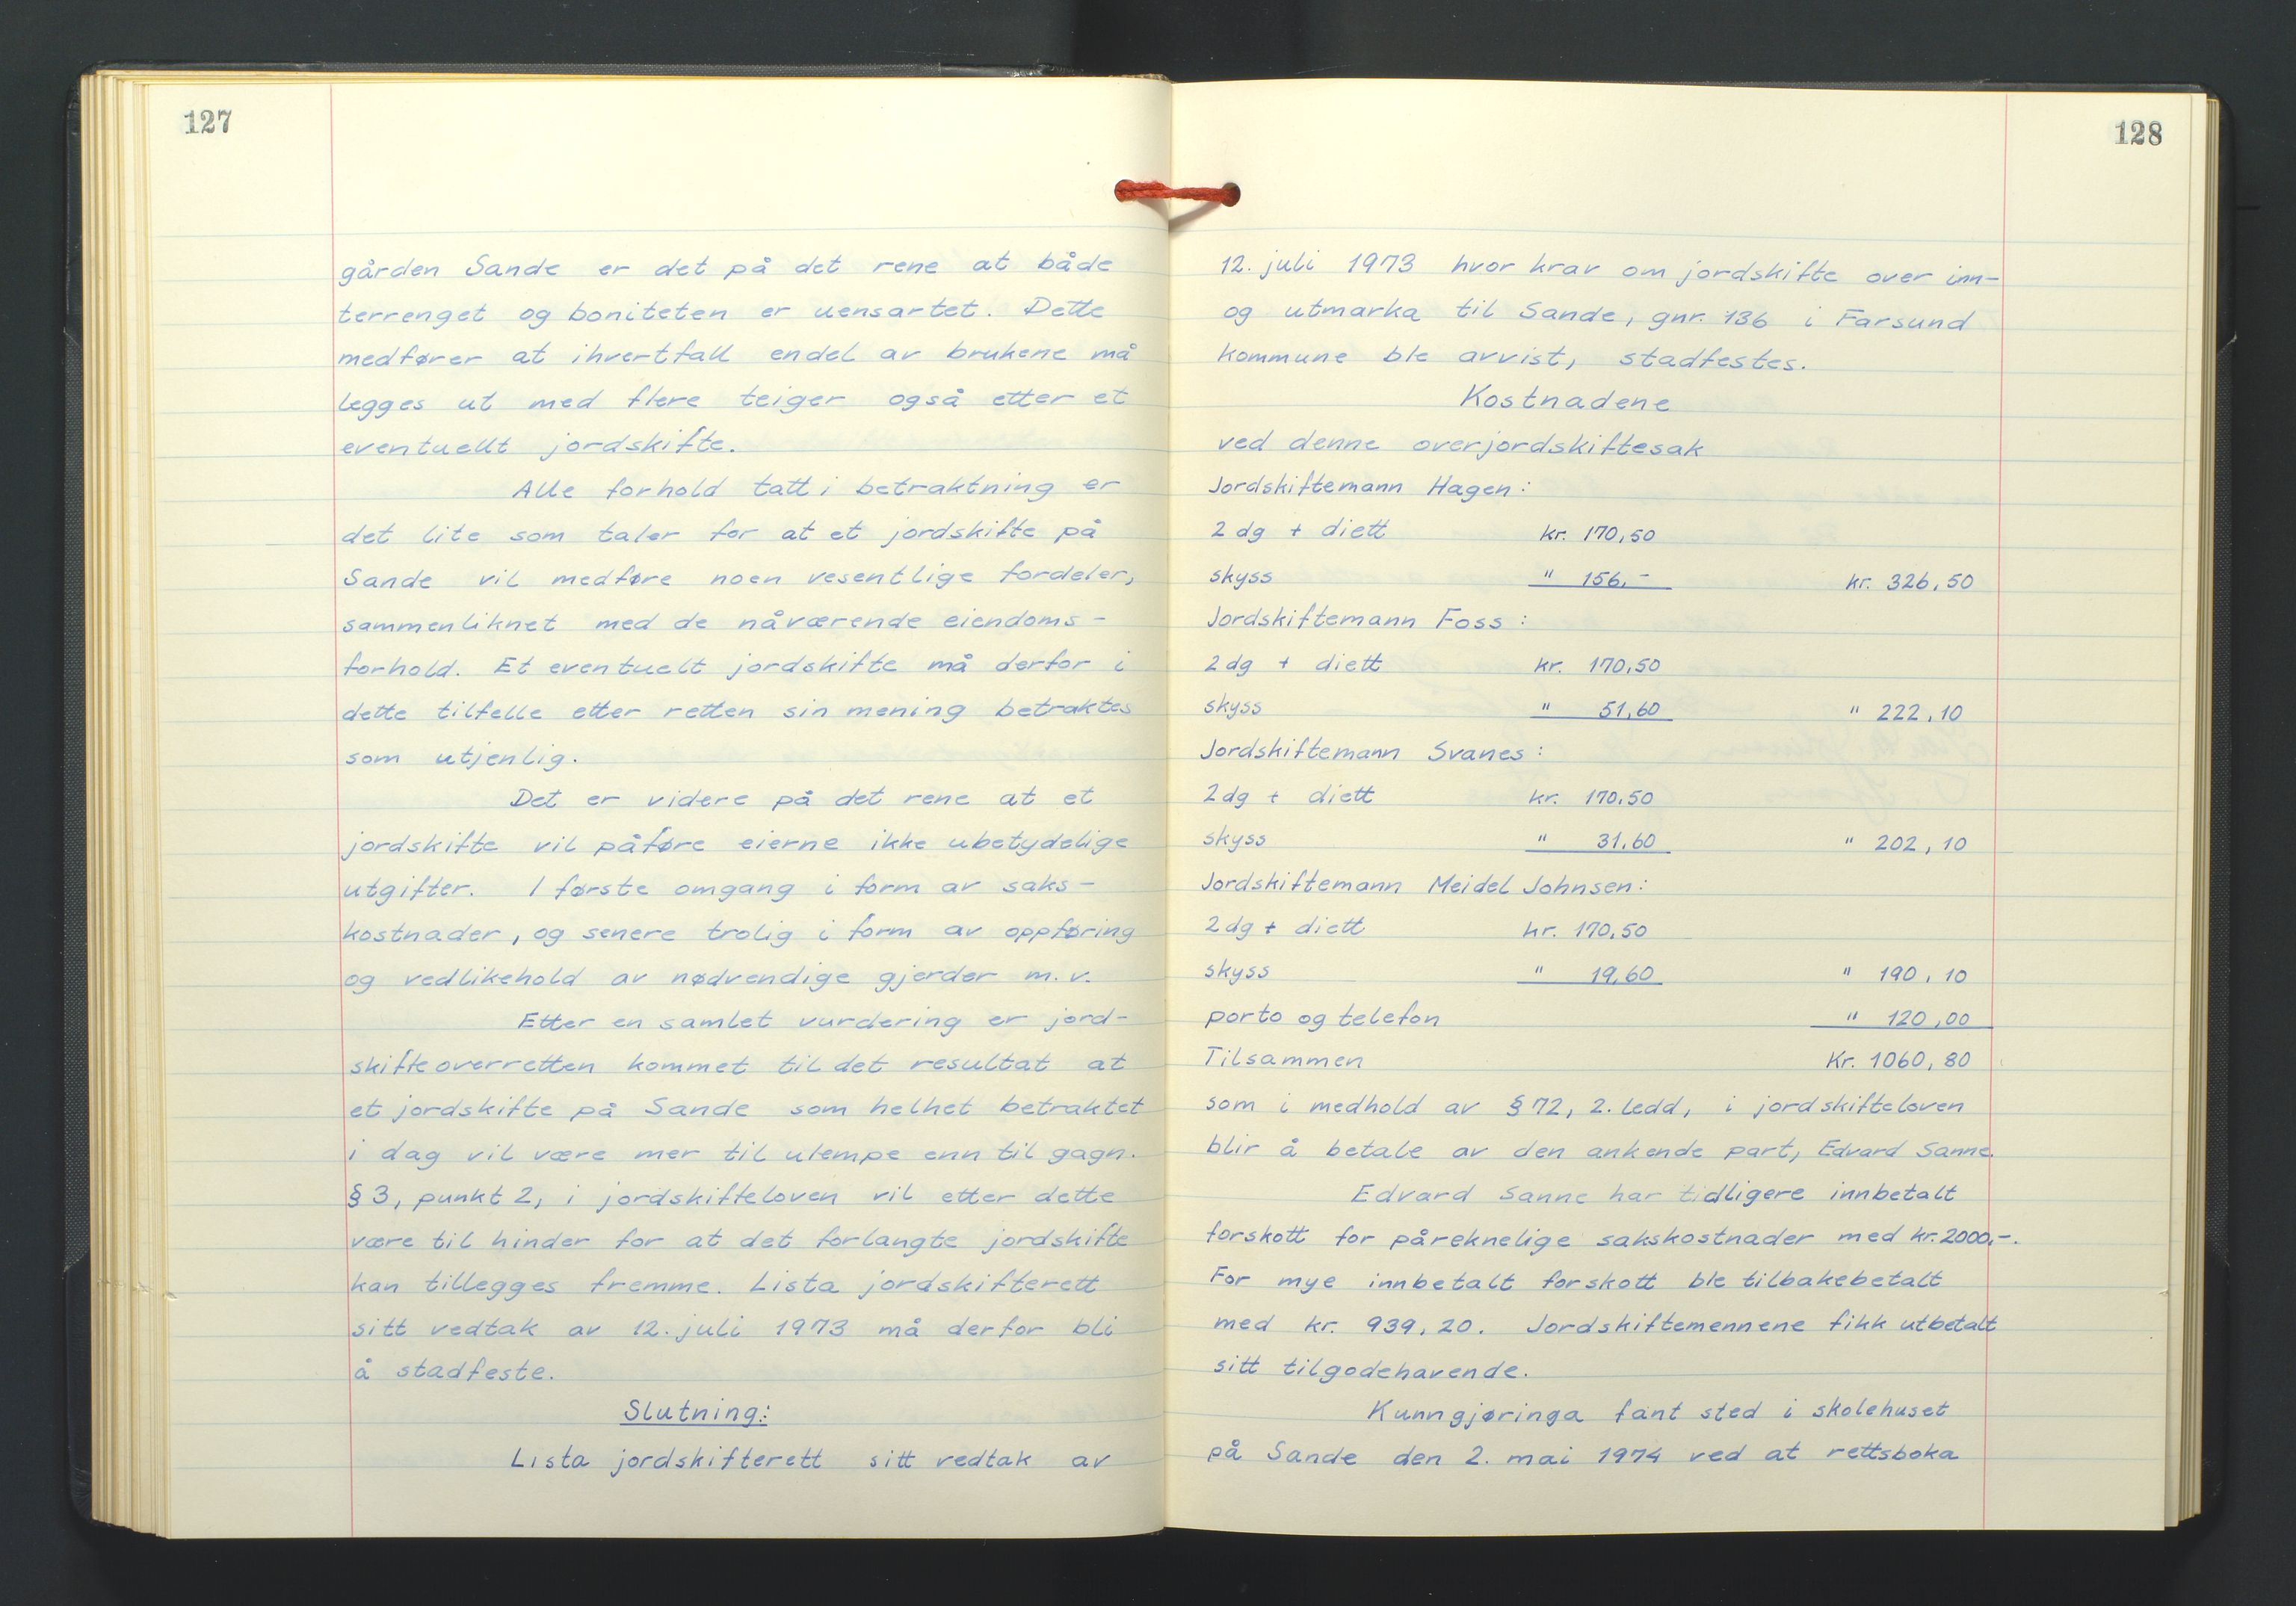 127
gården Sande er det på det rene at både
terrenget og boniteten er uensartet. Dette
medfører at ihvertfall endel av brukene må
legges ut med flere teiger også etter et
eventuellt jordskifte.
Alle forhold tatt i betraktning er
det lite som taler for at et jordskifte på
Sande vil medføre noen vesentlige fordeler,
sammenliknet med de nåværende eiendoms-
forhold. Et eventuelt jordskifte må derfor i
dette tilfelle etter retten sin mening betraktes
som utjenlig.
Det er videre på det rene at et
jordskifte vil påføre eierne ikke ubetydelige
utgifter. I første omgang i form av saks-
kostnader, og senere trolig i form av oppføring
og vedlikehold av nødvendige gjerder m.v.
Etter en samlet vurdering er jord-
skifteoverretten kommet til det resultat at
et jordskifte på Sande som helhet betraktet
i dag vil være mer til ulempe enn til gagn.
§ 3, punkt 2, i jordskifteloven vil etter dette
være til hinder for at det forlangte jordskifte
kan tillegges fremme. Lista jordskifterett
sitt vedtak av 12. juli 1973 må derfor bli
å stadfeste.
Slutning:
Lista jordskifterett sitt vedtak av
128
12. juli 1973 hvor krav om jordskifte over inn-
og utmarka til Sande, gnr. 136 i Farsund
kommune ble avvist, stadfestes.
Kostnadene
ved denne overjordskiftesak
Jordskiftemann Hagen:
2 dg + diett kr. 170,50
skyss " 156,- kr. 326,50
Jordskiftemann Foss:
2 dg + diett kr. 170,50
skyss " 51,60 " 222,10
Jordskiftemann Svanes:
2 dg + diett kr. 170,50
skyss " 31,60 " 202,10
Jordskiftemann Meidel Johnsen:
2 dg + diett kr. 170,50
skyss " 19,60 " 190,10
porto og telefon " 120,00
Tilsammen Kr. 1060,80
som i medhold av § 72, 2. ledd, i jordskifteloven
blir å betale av den ankende part, Edvard Sanne.
Edvard Sanne har tidligere innbetalt
forskott for påreknelige sakskostnader med kr. 2000,-.
For mye innbetalt forskott ble tilbakebetalt
med kr. 939,20. Jordskiftemennene fikk utbetalt
sitt tilgodehavende.
Kunngjøringa fant sted i skolehuset
på Sande den 2. mai 1974 ved at rettsboka